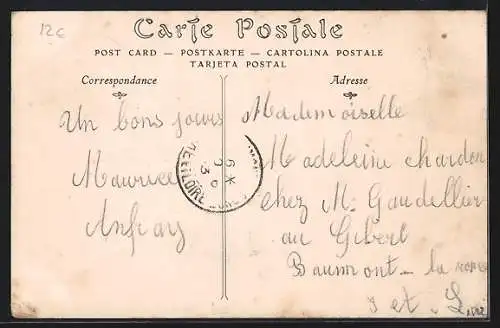 12€
Carte Postale
POST CARD — POSTKARTE — CARTOLINA POSTALE
TARJETA POSTAL
Correspondance
Adresse
Un bons jours
Maurice
Mademoiselle
Madeleine chardon
chez Mr Gaudellier
au Gibert
Baumont - la ronce
I et L